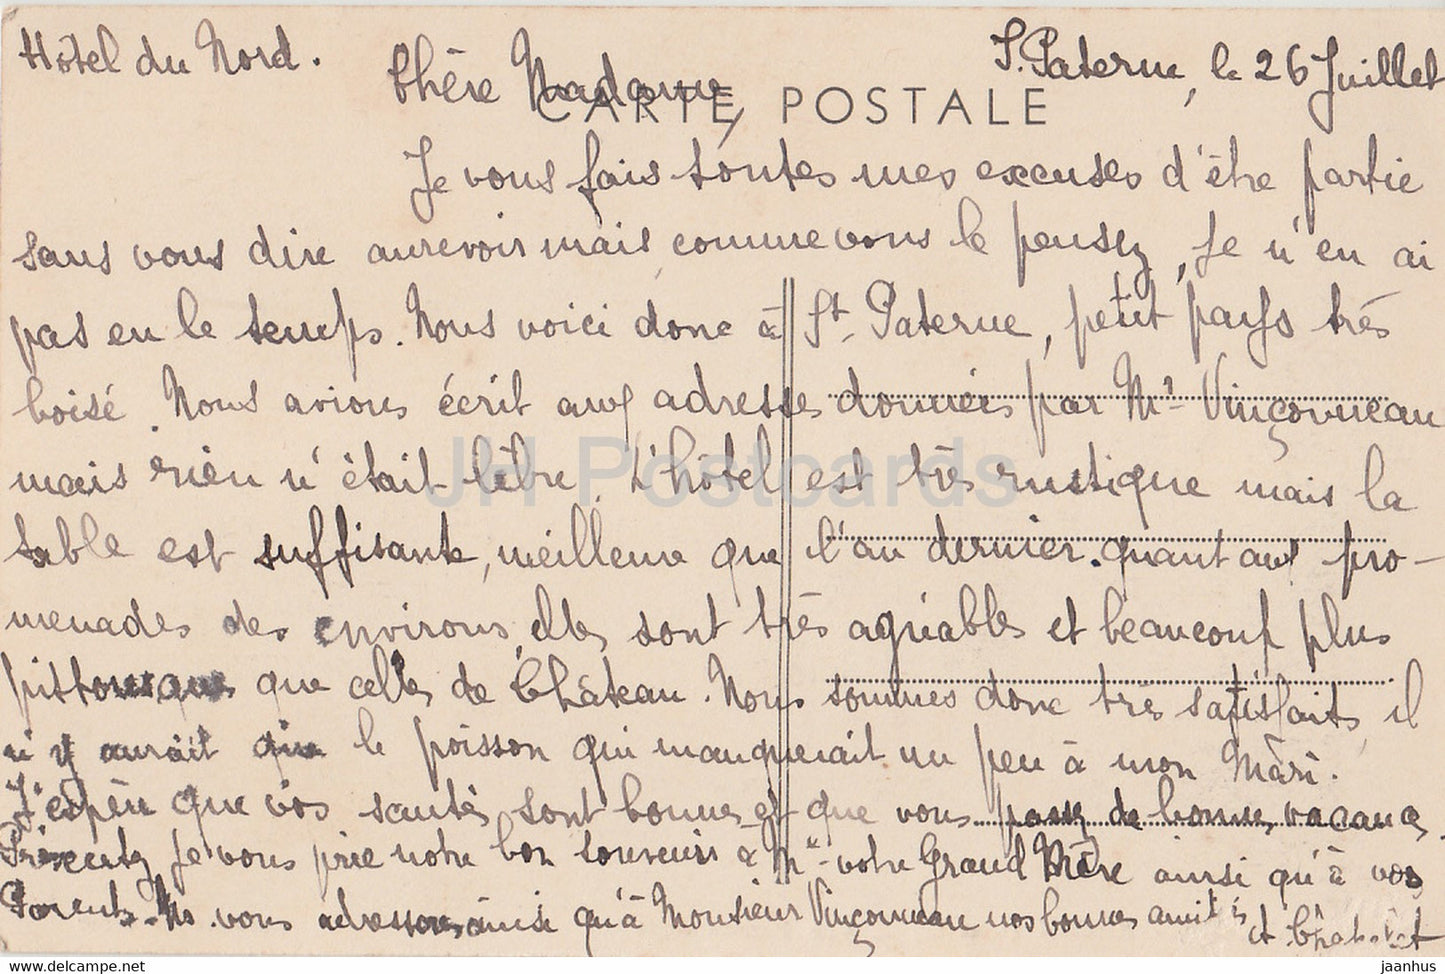 Hôtel du Nord.
S. Paterne, le 26 Juillet
Chère Madame,
CARTE POSTALE
Je vous fais toutes mes excuses d'être partie
sans vous dire aurevoir mais comme vous le pensez, je n'en ai
pas eu le temps. Nous voici donc à St. Paterne, petit pays très
boisé. Nous avions écrit aux adresses donnés par Mr. Vinçonneau
mais rien n'était libre. L'hôtel est très rustique mais la
table est suffisante, meilleure que l'an dernier. quant aux pro-
menades des environs, elles sont très agréables et beaucoup plus
pittoresques que celles de Château. Nous sommes donc très satisfaits, il
n'y aurait que le poisson qui manquerait un peu à mon Mari.
J'espère que vos santés sont bonnes et que vous passez de bonnes vacances.
Présentez je vous prie notre bon souvenir à Me votre Grand Mère ainsi qu'à vos
Parents. Ns. vous adressons ainsi qu'à Monsieur Vinçonneau nos bonnes amitiés
et
JH Postcards
jaanhus @ www.delcampe.net